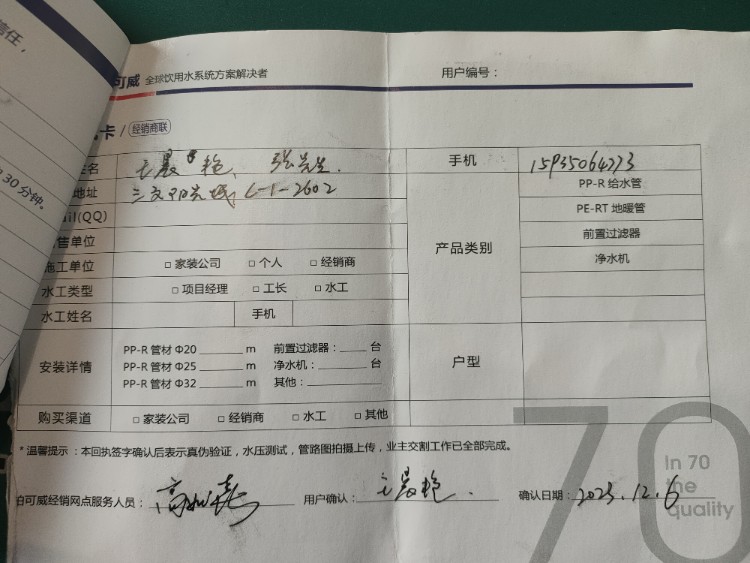 信任，
30分钟。
可威 全球饮用水系统方案解决者 用户编号：
卡 / 经销商联
名 王晨艳、张先生. 手机 15935064773
地址 三文阳光城 C-1-2602 PP-R 给水管
ail(QQ) PE-RT 地暖管
售单位 产品类别 前置过滤器
施工单位 □ 家装公司 □ 个人 □ 经销商 净水机
水工类型 □ 项目经理 □ 工长 □ 水工
水工姓名 手机
安装详情 户型
PP-R 管材 Φ20 ______ m 前置过滤器：____ 台
PP-R 管材 Φ25 ______ m 净水机：______ 台
PP-R 管材 Φ32 ______ m 其他：________
购买渠道 □ 家装公司 □ 经销商 □ 水工 □ 其他
* 温馨提示：本回执签字确认后表示真伪验证，水压测试，管路图拍摄上传，业主交割工作已全部完成。
70
In 70
the
quality
伯可威经销网点服务人员： 用户确认：王晨艳. 确认日期：2023.12.6